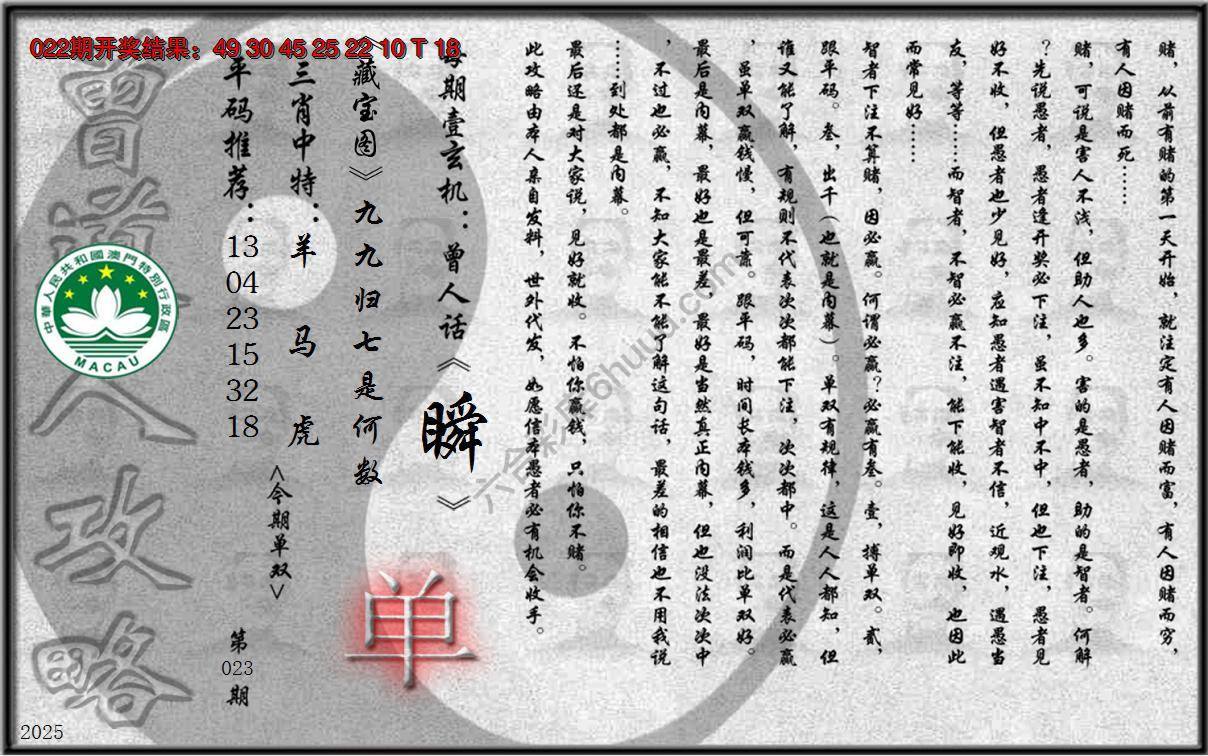 022期开奖结果：49 30 45 25 22 10 T 18
赌，从前有赌的第一天开始，就注定有人因赌而富，有人因赌而穷，
有人因赌而死……
赌，可说是害人不浅，但助人也多。害的是愚者，助的是智者。何解
？先说愚者，愚者逢开奖必下注，虽不知中不中，但也下注，愚者见
好不收，但愚者也少见好，应知愚者遇害智者不信，近观水，遇愚当
友，等等……而智者，不智必赢不注，能下能收，见好即收，也因此
而常见好……
智者下注不算赌，因必赢。何谓必赢？必赢有叁。壹，搏单双。贰，
跟平码。叁，出千（也就是内幕）。单双有规律，这是人人都知，但
谁又能了解，有规则不代表次次都能下注，次次都中。而是代表必赢
，虽单双赢钱慢，但可靠。跟平码，时间长本钱多，利润比单双好。
最后是内幕，最好也是最差，最好是当然真正内幕，但也没法次次中
，不过也必赢，不知大家能不能了解这句话，最差的相信也不用我说
……到处都是内幕。
最后还是对大家说，见好就收。不怕你赢钱，只怕你不赌。
此攻略由本人亲自发料，世外代发，如愿信本愚者必有机会收手。
每期壹玄机：曾人话《瞬》
《藏宝图》九九归七是何数
单
三肖中特：羊 马 虎
<今期单双>
平码推荐：13 04 23 15 32 18
第023期
曾道人攻略
中華人民共和國澳門特別行政區
MACAU
六合彩库6huuu.com
2025